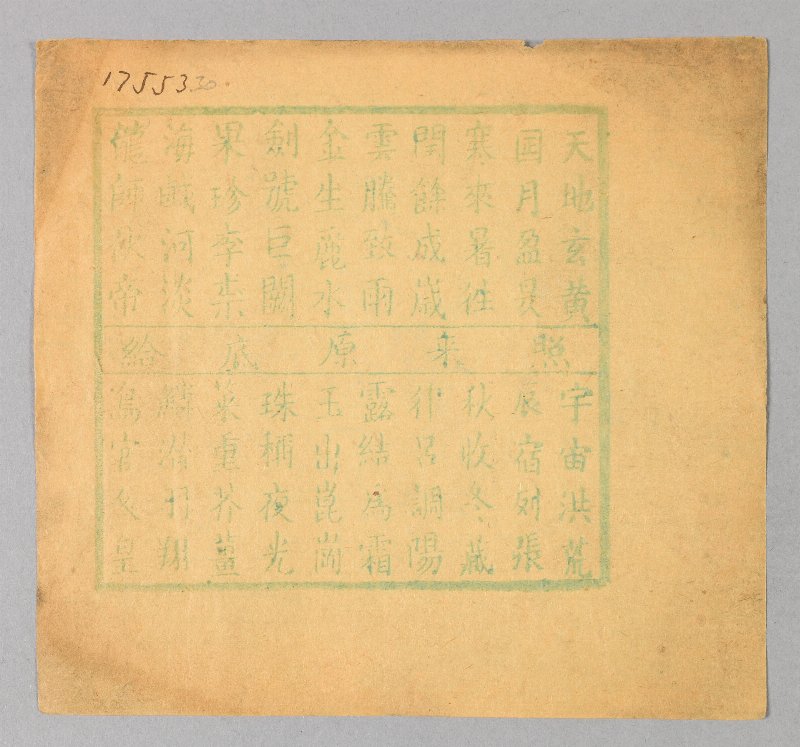 17553.30
天地玄黄
月盈昃
寒來暑往
閏餘成歲
雲騰致雨
金生麗水
劍號巨闕
果珍李柰
海鹹河淡
師伙帝
照来原底給
宇宙洪荒
辰宿列張
秋收冬藏
律吕調陽
露結為霜
玉出崑崗
珠稱夜光
菜重芥薑
鱗潜羽翔
鳥官人皇